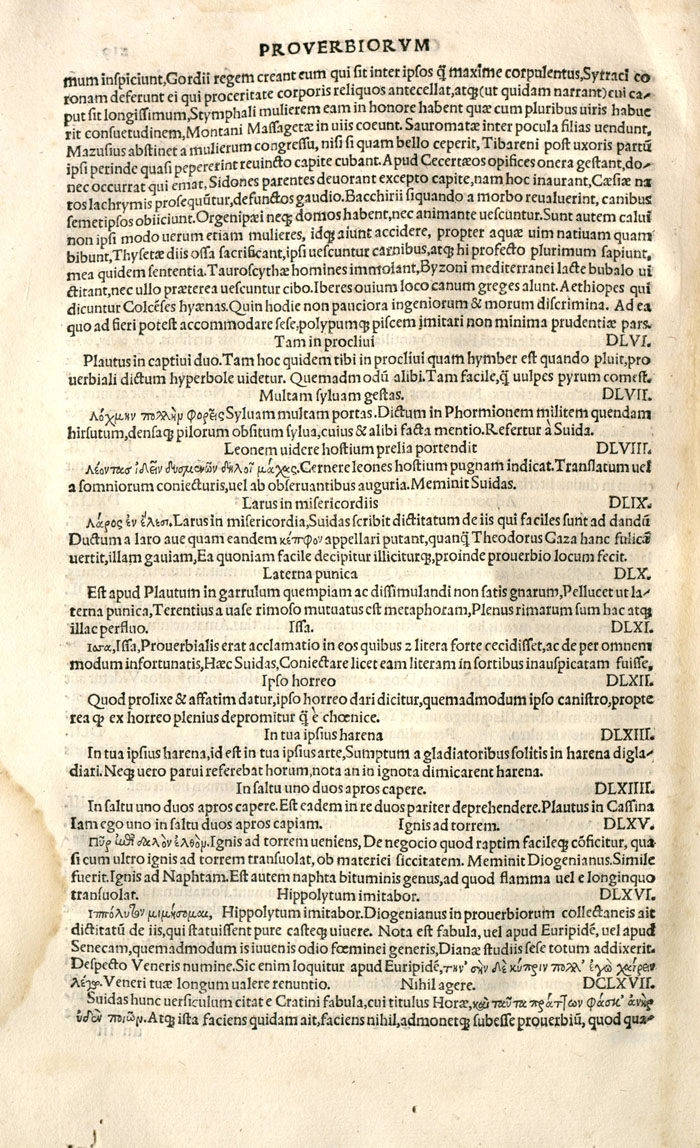 PROVERBIORVM
mum inspiciunt,Gordii regem creant eum qui sit inter ipsos q̃ maxime corpulentus,Sytraci co
ronam deferunt ei qui proceritate corporis reliquos antecellat,atqꝫ(ut quidam narrant)cui ca-
put sit longissimum,Stymphali mulierem eam in honore habent quæ cum pluribus uiris habue
rit consuetudinem,Montani Massagetæ in uiis coeunt. Sauromatæ inter pocula filias uendunt,
Mazusius abstinet a mulierum congressu, nisi si quam bello ceperit, Tibareni post uxoris partũ
ipsi perinde quasi pepererint reuincto capite cubant. Apud Cecertæos opifices onera gestant,do-
nec occurrat qui emat, Sidones parentes deuorant excepto capite,nam hoc inaurant,Cæsiæ na
tos lachrymis prosequũtur,defunctos gaudio. Bacchirii siquando a morbo reualuerint, canibus
semetipsos obiiciunt.Orgenipæi neqꝫ domos habent,nec animante uescuntur.Sunt autem calui
non ipsi modo uerum etiam mulieres, idqꝫ aiunt accidere, propter aquæ uim natiuam quam
bibunt,Thysetæ diis ossa sacrificant,ipsi uescuntur carnibus,atqꝫ hi profecto plurimum sapiunt,
mea quidem sententia. Tauroscythæ homines immolant,Byzoni mediterranei lacte bubalo ui
ctitant,nec ullo præterea uescuntur cibo.Iberes ouium loco canum greges alunt. Aethiopes qui
dicuntur Colcẽses hyænas.Quin hodie non pauciora ingeniorum & morum discrimina. Ad ea
quo ad fieri potest accommodare sese,polypumqꝫ piscem imitari non minima prudentiæ pars.
Tam in procliui DLVI.
Plautus in captiui duo.Tam hoc quidem tibi in procliui quam hymber est quando pluit,pro
uerbiali dictum hyperbole uidetur. Quemadmodũ alibi.Tam facile,q̃ uulpes pyrum comest.
Multam syluam gestas. DLVII.
Λόχμην πολλὴν φορεῖς Syluam multam portas.Dictum in Phormionem militem quendam
hirsutum,densaqꝫ pilorum obsitum sylua,cuius & alibi facta mentio.Refertur à Suida.
Leonem uidere hostium prelia portendit DLVIII.
Λέοντας ἰδεῖν δυσμενῶν δηλοῖ μάχας.Cernere leones hostium pugnam indicat.Translatum uel
a somniorum coniecturis,uel ab obseruantibus auguria. Meminit Suidas.
Larus in misericordiis DLIX.
Λάρος ἐν ἕλεσι.Larus in misericordia,Suidas scribit dictitatum de iis qui faciles sunt ad dandũ
Ductum a laro aue quam eandem κέπφον appellari putant,quanqꝫ Theodorus Gaza hanc fulicã
uertit,illam gauiam,Ea quoniam facile decipitur illiciturqꝫ,proinde prouerbio locum fecit.
Laterna punica DLX.
Est apud Plautum in garrulum quempiam ac dissimulandi non satis gnarum,Pellucet ut la-
terna punica,Terentius a uase rimoso mutuatus est metaphoram,Plenus rimarum sum hac atqꝫ
illac perfluo. Issa. DLXI.
Ισσα,Issa,Prouerbialis erat acclamatio in eos quibus z litera forte cecidisset,ac de per omnem
modum infortunatis,Hæc Suidas,Coniectare licet eam literam in sortibus inauspicatam fuisse,
Ipso horreo DLXII.
Quod prolixe & affatim datur,ipso horreo dari dicitur,quemadmodum ipso canistro,propte
rea qꝫ ex horreo plenius depromitur q̃ è chœnice.
In tua ipsius harena DLXIII.
In tua ipsius harena,id est in tua ipsius arte,Sumptum a gladiatoribus solitis in harena digla-
diari. Neqꝫ uero parui referebat horum,nota an in ignota dimicarent harena.
In saltu uno duos apros capere. DLXIIII.
In saltu uno duos apros capere.Est eadem in re duos pariter deprehendere.Plautus in Cassina
Iam ego uno in saltu duos apros capiam. Ignis ad torrem. DLXV.
Πῦρ ἐπὶ δαλὸν ἐλθόν.Ignis ad torrem ueniens, De negocio quod raptim facileqꝫ cõficitur, qua
si cum ultro ignis ad torrem transuolat, ob materiei siccitatem. Meminit Diogenianus.Simile
fuerit.Ignis ad Naphtam.Est autem naphta bituminis genus,ad quod flamma uel e longinquo
transuolat. Hippolytum imitabor. DLXVI.
Ιππόλυτον μιμήσομαι, Hippolytum imitabor.Diogenianus in prouerbiorum collectaneis ait
dictitatũ de iis,qui statuissent pure casteqꝫ uiuere. Nota est fabula, uel apud Euripidẽ, uel apud
Senecam,quemadmodum is iuuenis odio fœminei generis,Dianæ studiis sese totum addixerit.
Despecto Veneris numine.Sic enim loquitur apud Euripidẽ,την' σὴν δὲ κύπριν πολλ' ἐγὼ χαίρειν
λέγω.Veneri tuæ longum ualere renuntio. Nihil agere. DCLXVII.
Suidas hunc uersiculum citat e Cratini fabula,cui titulus Horæ,καὶ ταῦτα πράττων φάσκ' ἀνὴρ
ὐδὲν ποιῶν.Atqꝫ ista faciens quidam ait,faciens nihil,admonetqꝫ subesse prouerbiũ, quod qua-